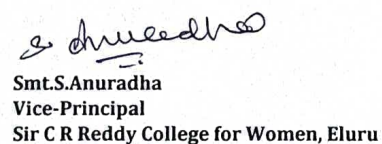 S. Anuradha
Smt.S.Anuradha
Vice-Principal
Sir C R Reddy College for Women, Eluru